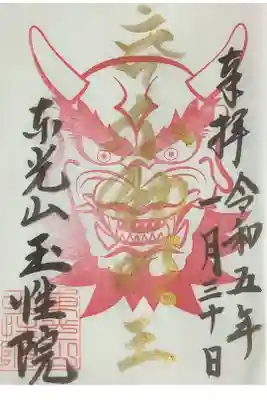 奉拝
令和五年
一月三十日
王
東光山玉性院